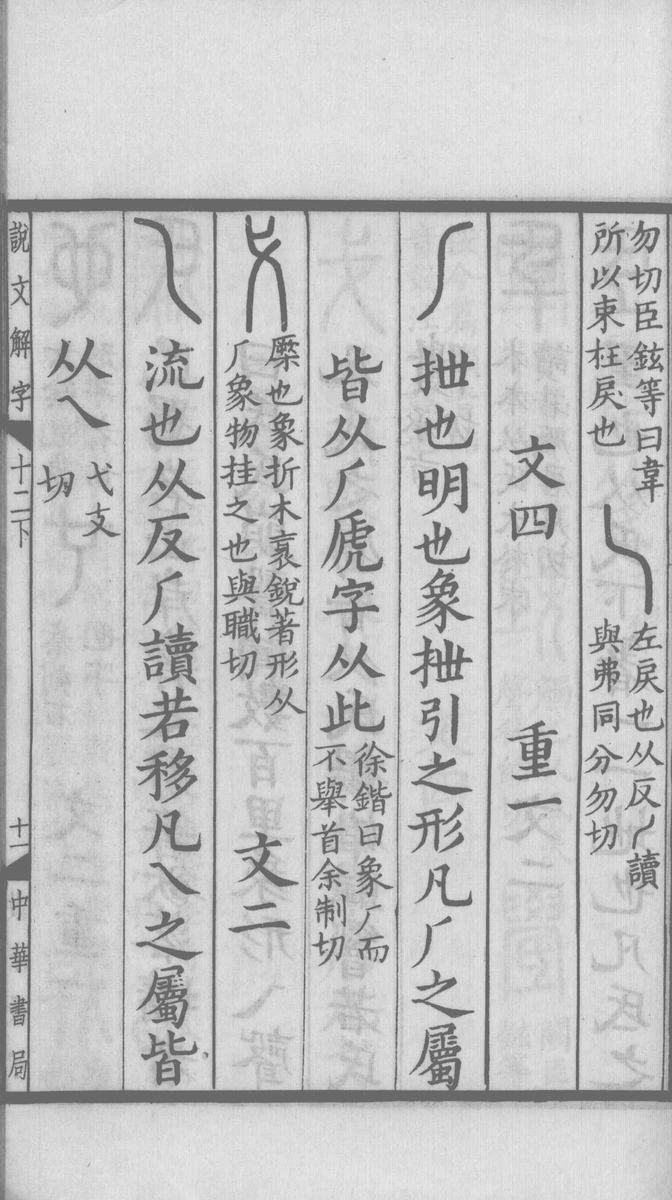 勿切臣鉉等曰韋
所以束枉戾也
乀
左戾也从反丿讀
與弗同分勿切
文四 重一
𠂆
抴也明也象抴引之形凡𠂆之屬
皆从𠂆虒字从此
徐鍇曰象𠂆而
不舉首余制切
弋
橜也象折木衺銳著形从
𠂆象物挂之也與職切
文二
乁
流也从反𠂆讀若移凡乁之屬皆
从乁
弋支
切
說文解字 十二下 十一 中華書局